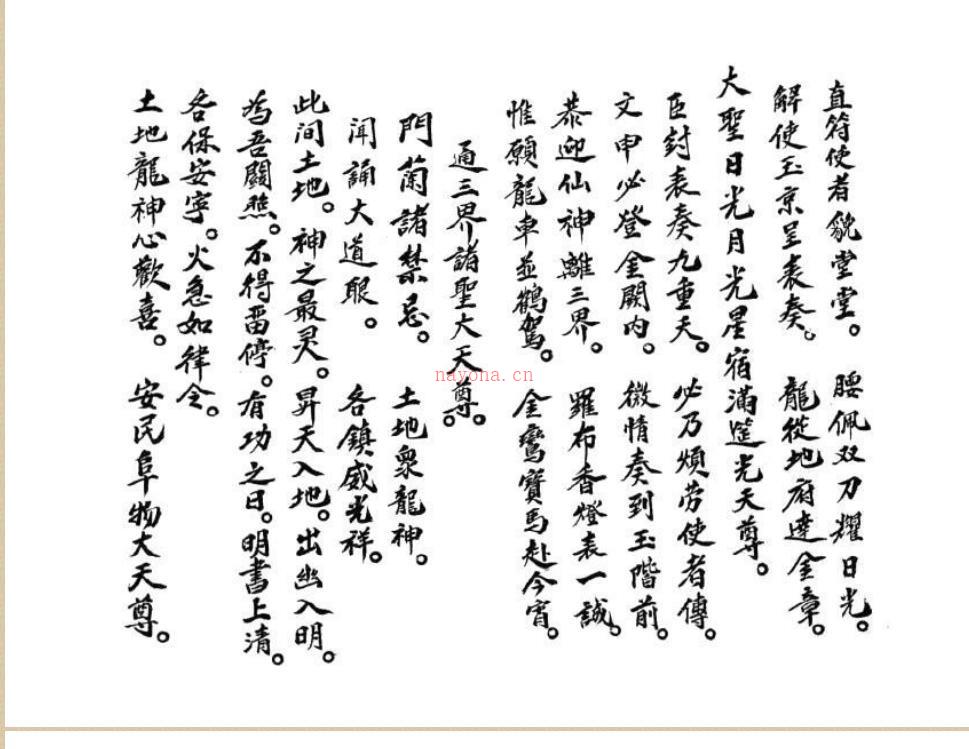 直符使者貌堂堂。腰佩双刀耀日光。
解使玉京呈表奏。龍從地府達金章。
大聖日光月光星宿滿筵光天尊。
臣封表奏九重天。必乃煩劳使者傳。
文申必登金闕内。微情奏到玉階前。
恭迎仙神離三界。羅布香燈表一誠。
惟願龍車並鶴駕。金鸞寶馬赴今宵。
通三界諸聖大天尊。
門蘭諸禁忌。土地衆龍神。
闻誦大道眼。各鎮威光祥。
此间土地。神之最灵。昇天入地。出幽入明。
為吾關照。不得畱停。有功之日。明書上清。
各保安寜。火急如律令。
土地龍神心歡喜。安民阜物大天尊。
nayona.cn